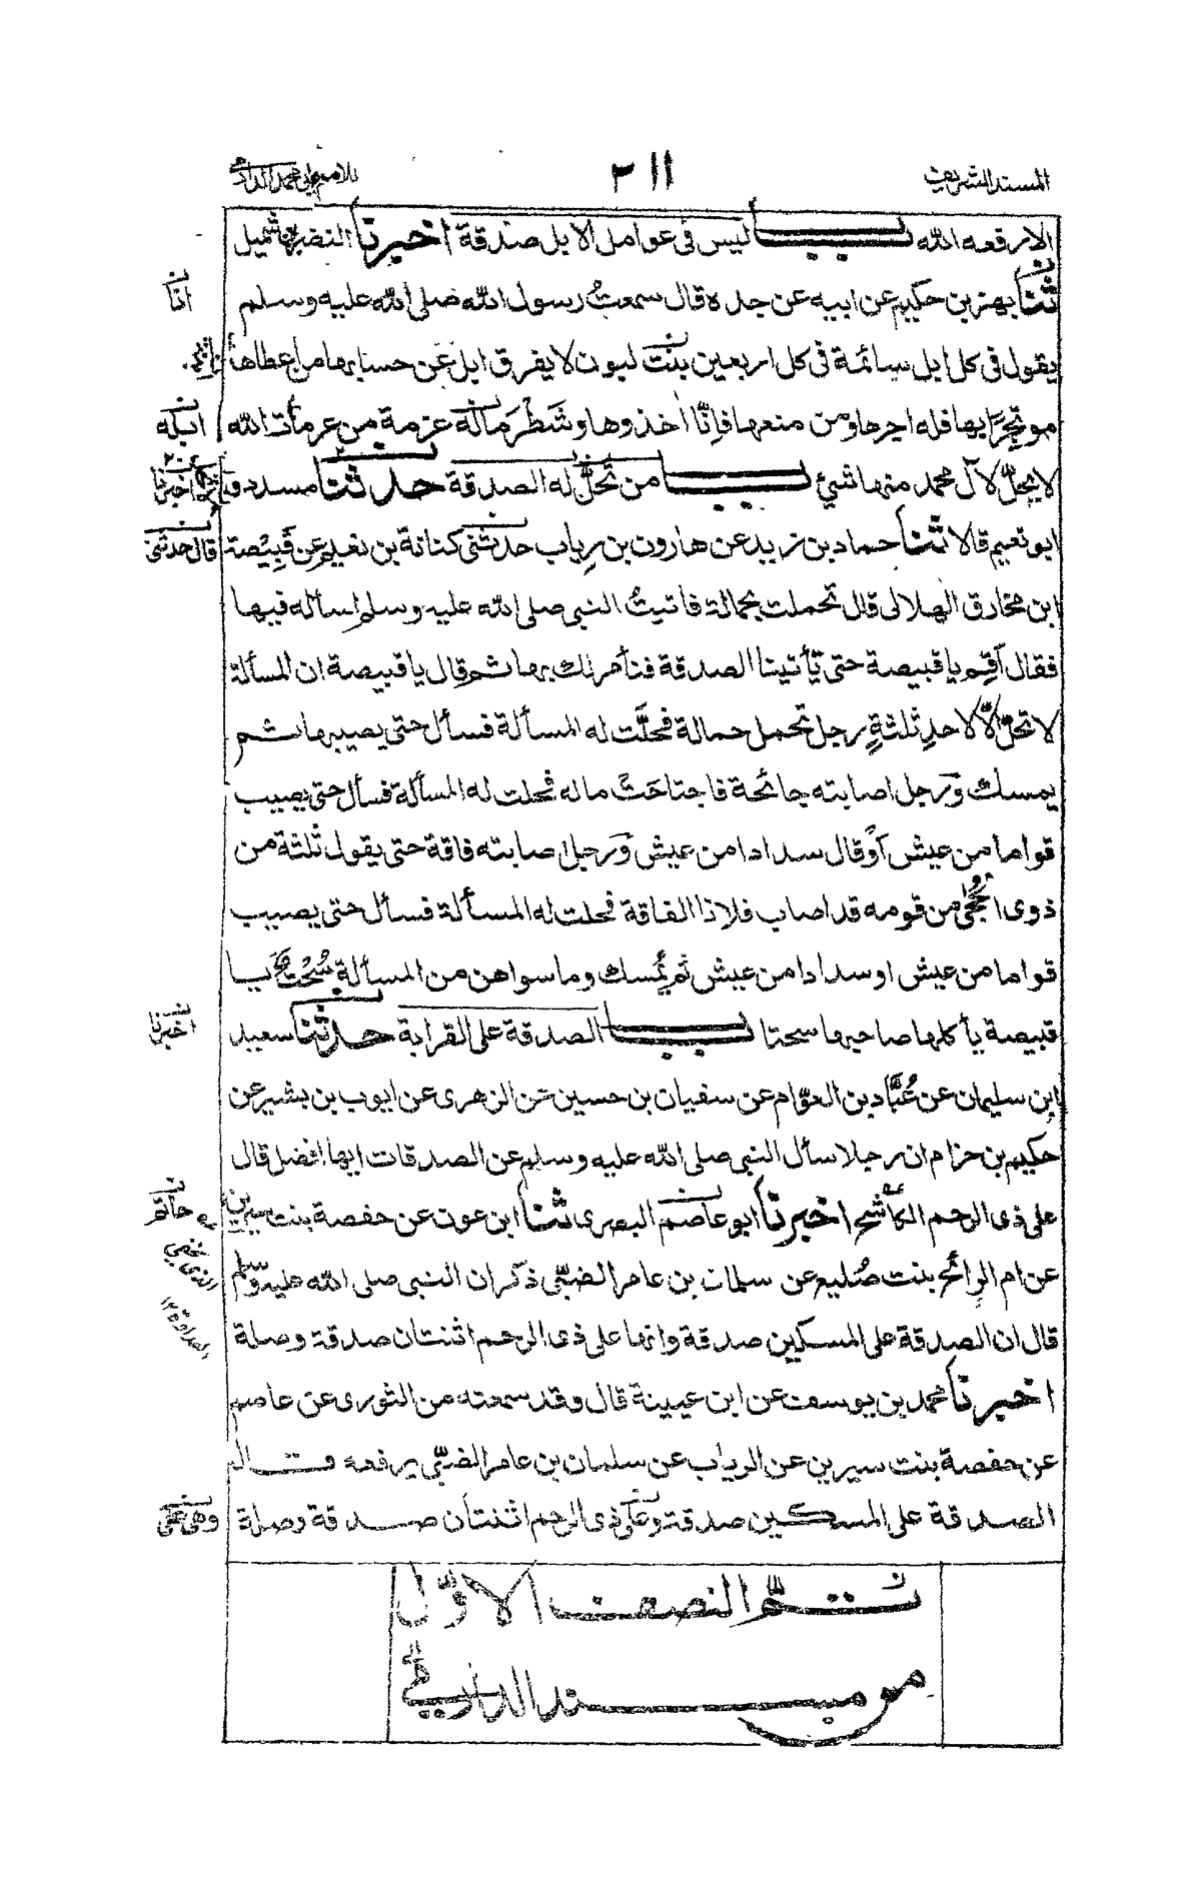 المسند الشريف
٢١١
للامام ابى محمد الدارمى
الا رفعه الله باب ليس فى عوامل الابل صدقة اخبرنا النضر بن شميل
ثنا بهز بن حكيم عن ابيه عن جده قال سمعتُ رسول الله صلى الله عليه وسلم
يقول فى كل ابل سائمة فى كل اربعين بنت لبون لا يفرق ابل عن حسابها من اعطاها
موتجرًا بها فله اجرها ومن منعها فانّا اخذوها وشَطْرَ ماله عزمة من عزمات الله
لا يحلّ لآل محمد منها شئ باب من تحلّ له الصدقة حدثنا مسدد و
ابو نعيم قالا ثنا حماد بن زيد عن هارون بن رياب حدثنى كنانة بن نعيم عن قَبِيْصة
ابن مخارق الهلالى قال تحملت بحمالة فاتيتُ النبى صلى الله عليه وسلم اسأله فيها
فقال اَقِم يا قبيصة حتى تأتينا الصدقة فنأمر لك بها ثم قال يا قبيصة ان المسألة
لا تحلّ الّا لاحدِ ثلثةٍ رجل تحمل حمالة فحلَّت له المسألة فسأل حتى يصيبها ثم
يمسك ورجل اصابته جائحة فاجتاحَتْ ماله فحلت له المسألة فسأل حتى يصيب
قواما من عيش اَوْ قال سدادا من عيش ورجل اصابته فاقة حتى يقول ثلثة من
ذوى الحِجٰى من قومه قد اصاب فلانا الفاقة فحلت له المسألة فسأل حتى يصيب
قواما من عيش او سدادا من عيش ثم يُمسك وما سواهن من المسألة سُحْتٌ يا
قبيصة يأكلها صاحبها سحتا باب الصدقة على القرابة حدثنا سعيد
ابن سليمان عن عُبَّاد بن العوّام عن سفيان بن حسين عن الزهرى عن ايوب بن بشير عن
حكيم بن حزام ان رجلا سأل النبى صلى الله عليه وسلم عن الصدقات ايها افضل قال
على ذى الرحم الكاشح اخبرنا ابو عاصم البصرى ثنا ابن عون عن حفصة بنت سيرين
عن ام الرائح بنت صُليع عن سلمان بن عامر الضبّى ذكر ان النبى صلى الله عليه وسلم
قال ان الصدقة على المسكين صدقة وانها على ذى الرحم اثنتان صدقة وصلة
اخبرنا محمد بن يوسف عن ابن عيينة قال وقد سمعته من الثورى عن عاصم
عن حفصة بنت سيرين عن الرباب عن سلمان بن عامر الضبّى يرفعه قال
الصدقة على المسكين صدقة وعلى ذى الرحم اثنتان صدقة وصلة
انا
ابله
اخبرنا
قال حدثنى
اخبرنا
حاتم
الذى يخفى
العداوة ١٢
وهى على
تمّ النصف الاوّل
من مسند الدارمى